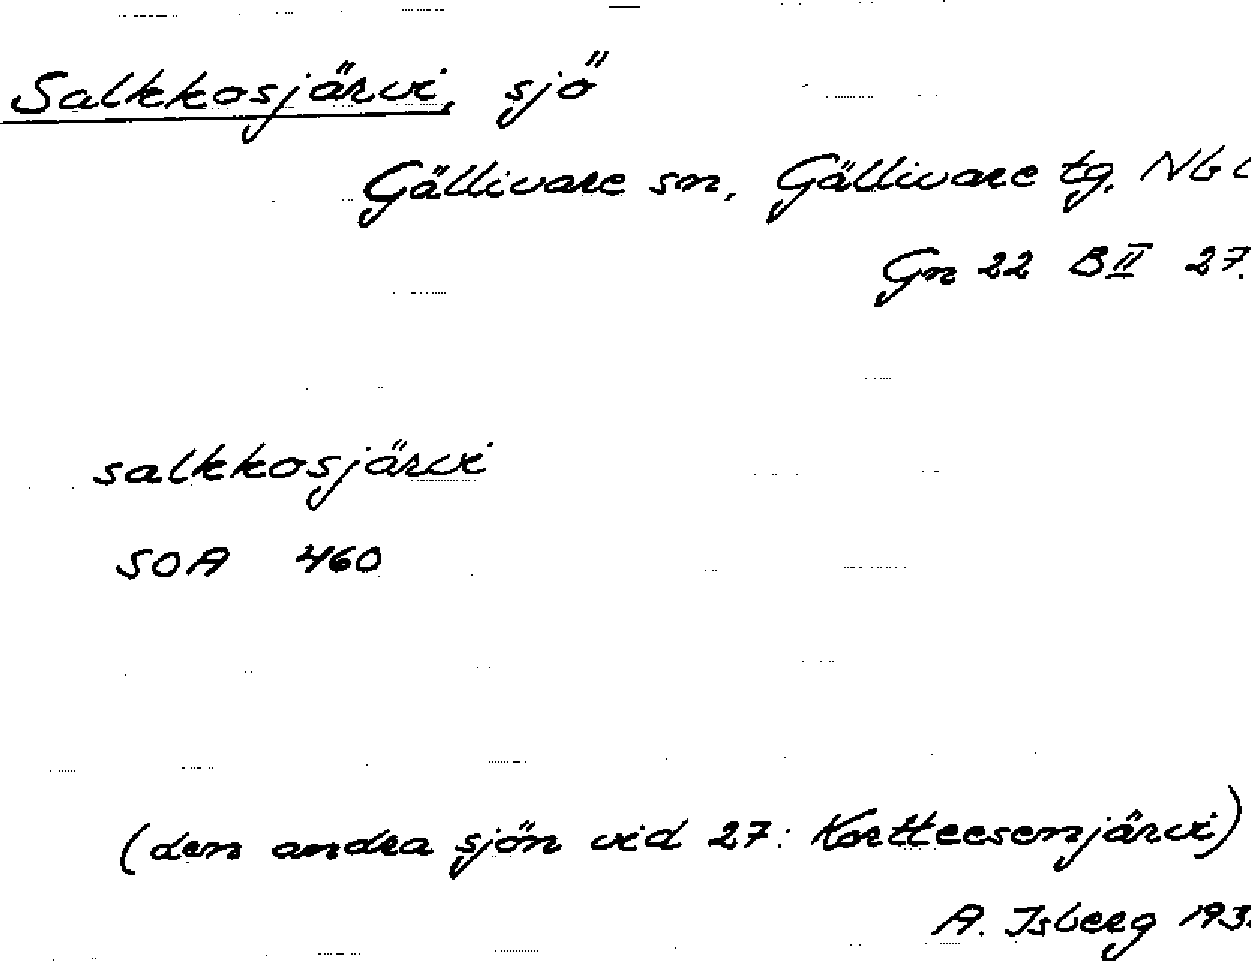 Salkkosjärvi, sjö
Gällivare sn, Gällivare tg,
Gn 22 B II 27.
salkkosjärvi
SOA 460
(den andra sjön vid 27: Kortteesenjärvi)
A. Isberg